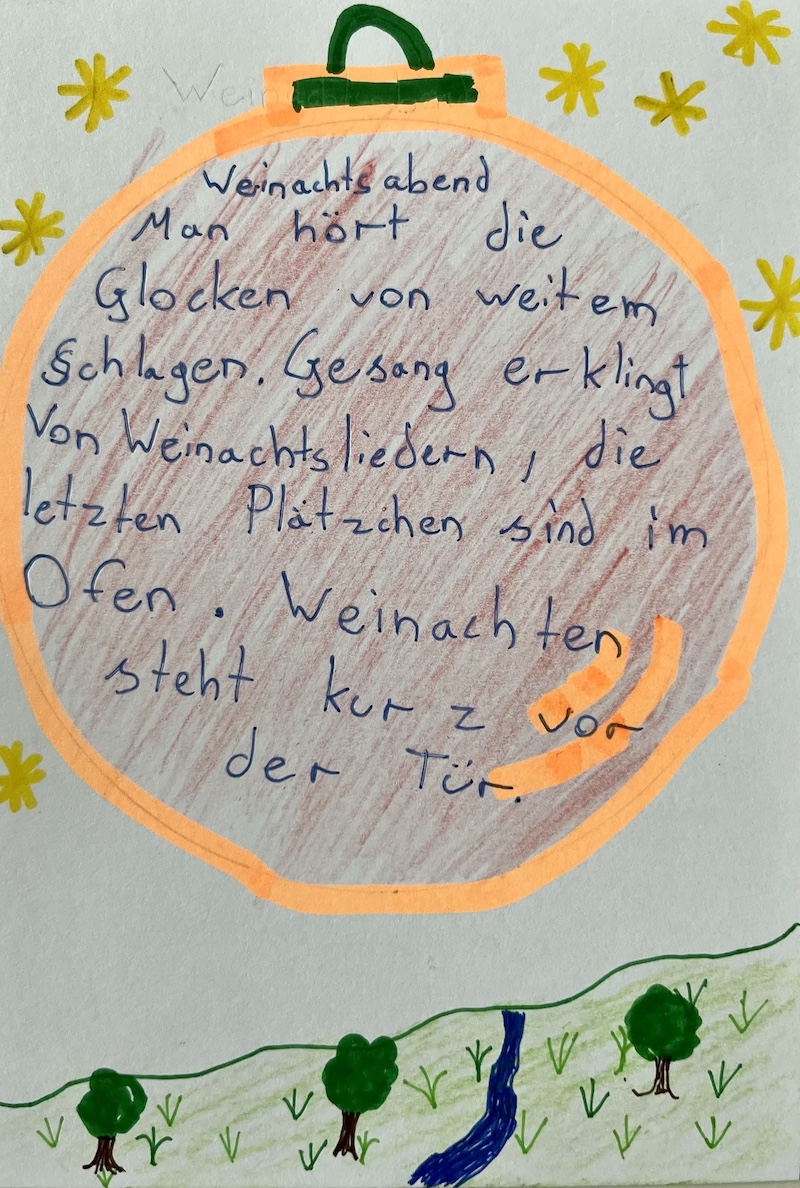 Weinachtsabend
Man hört die
Glocken von weitem
Schlagen. Gesang erklingt
Von Weinachtsliedern, die
letzten Plätzchen sind im
Ofen. Weinachten
steht kurz vor
der Tür.